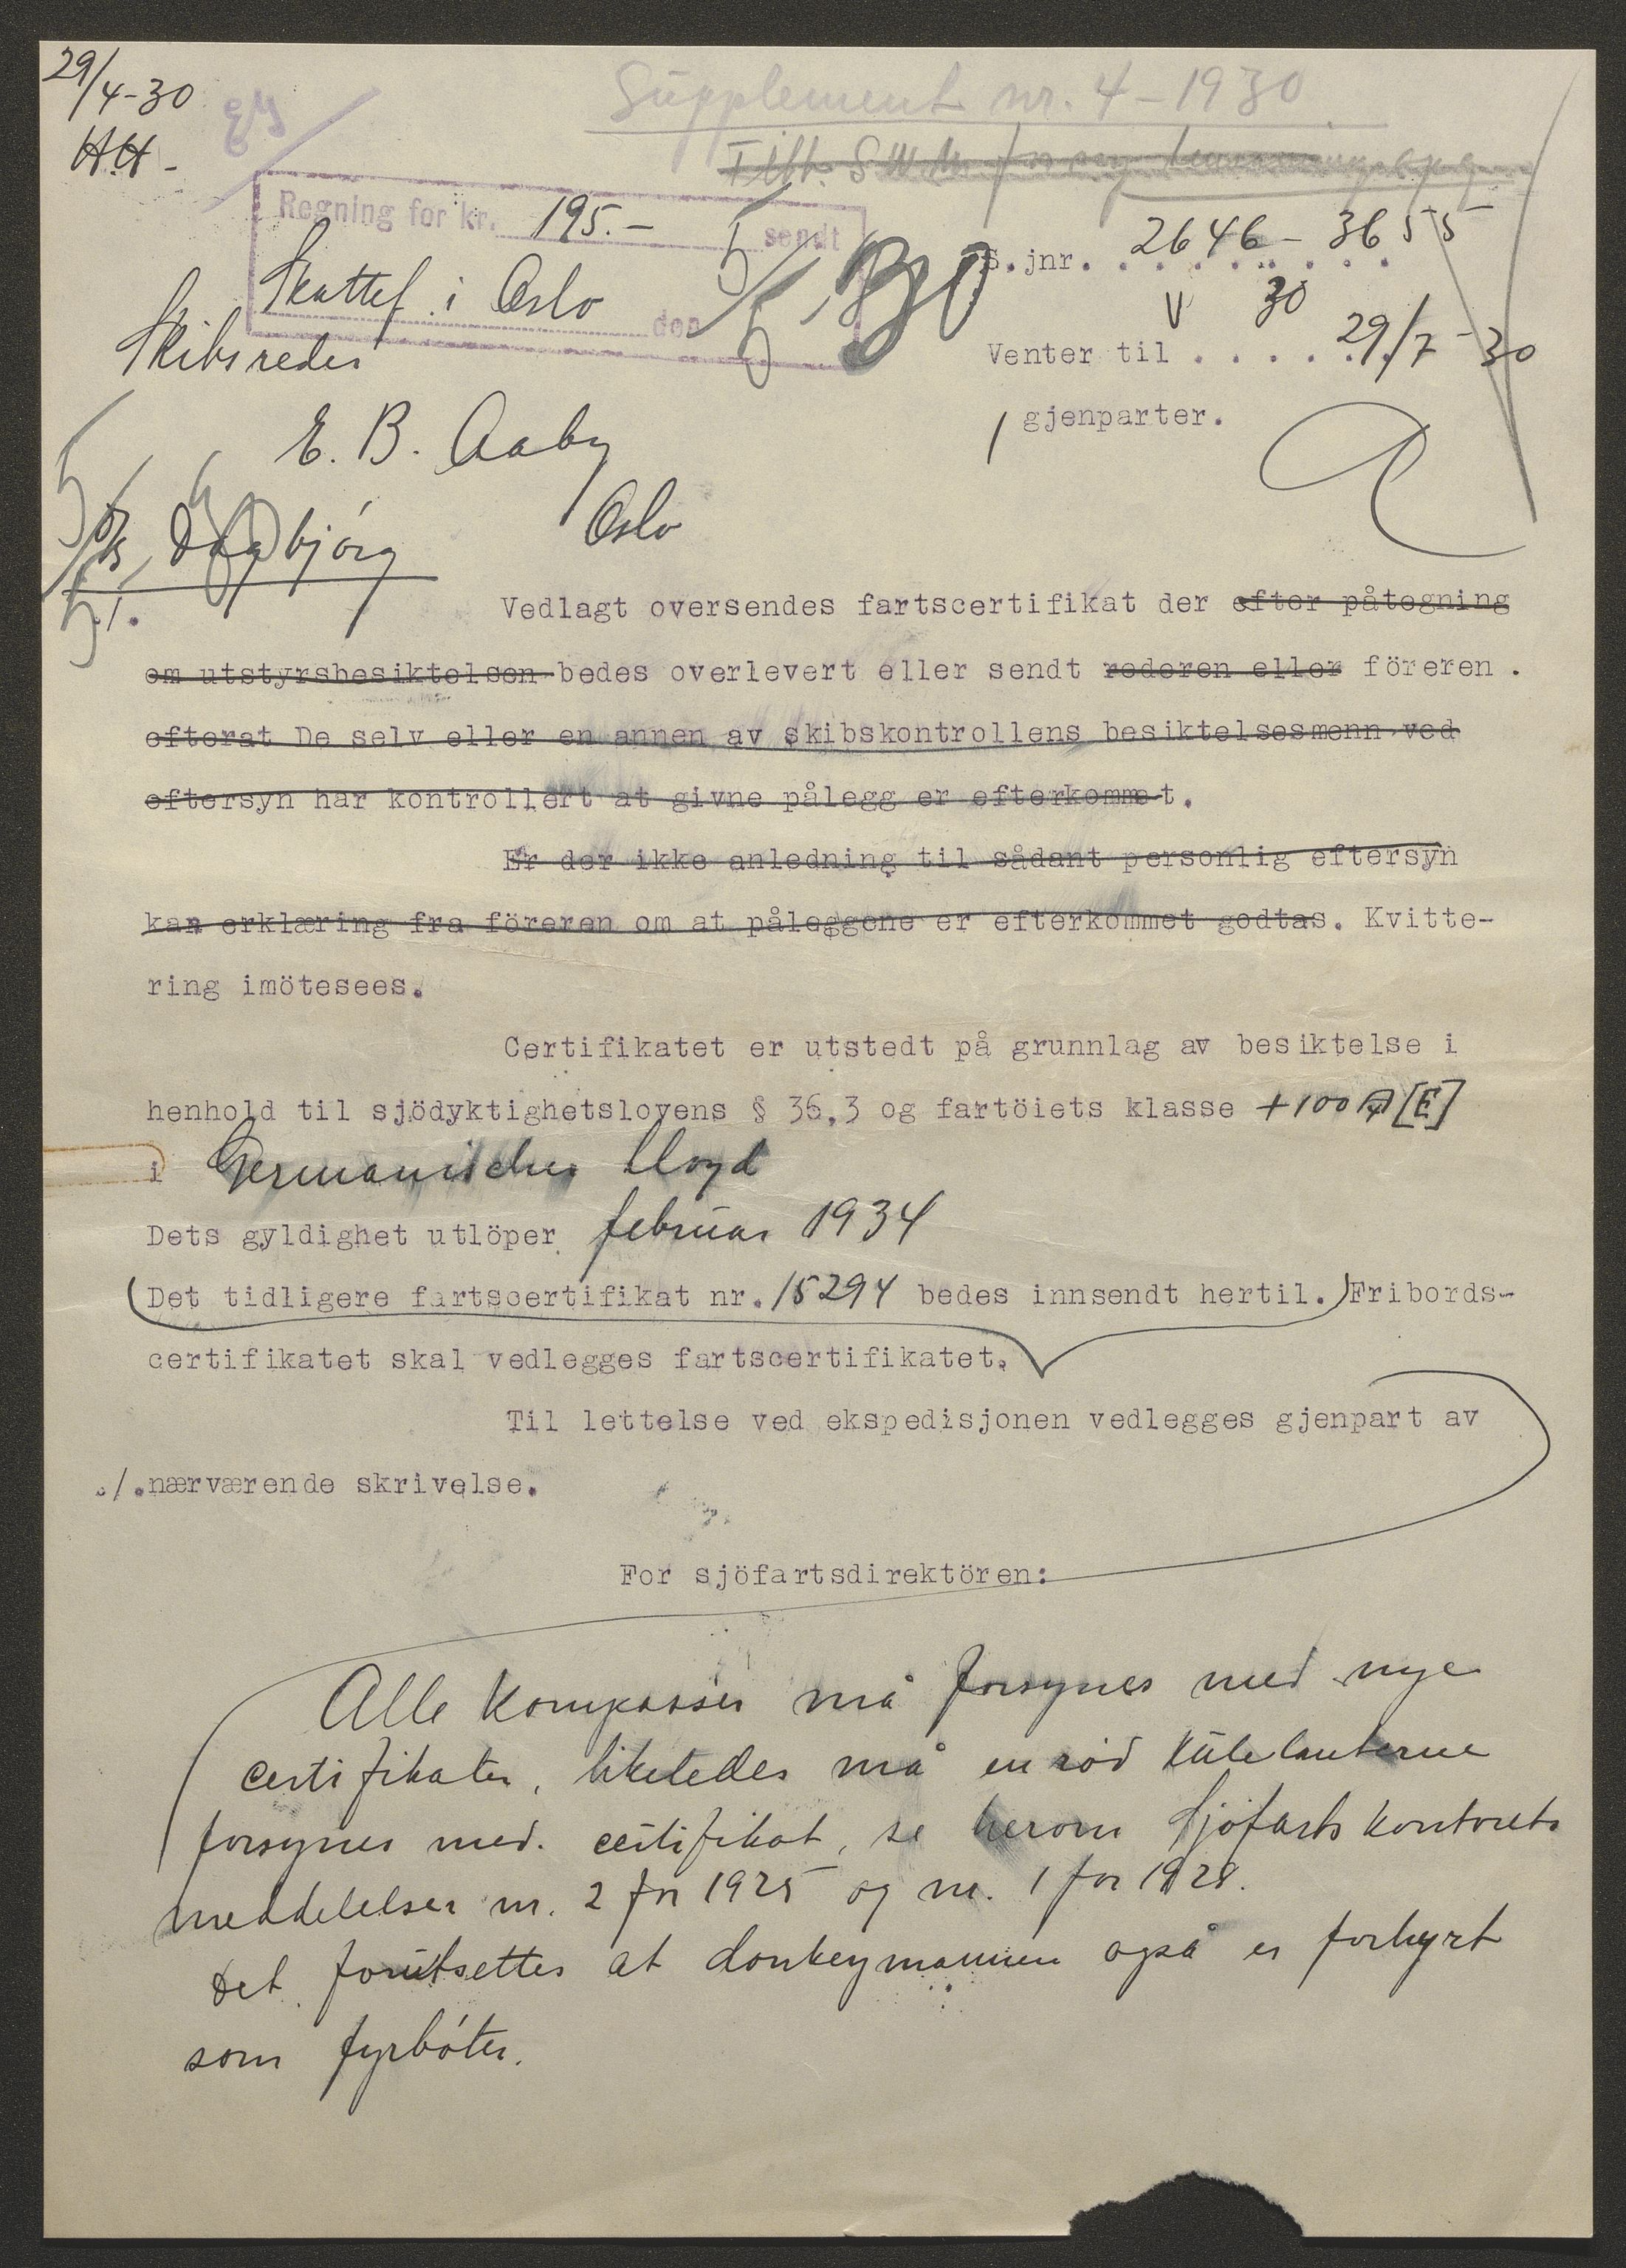 29/4-30
HH-
Supplement nr. 4 - 1930
Regning for kr. 195.- sendt
Skattef. i Oslo den 5/5 - 30
S.jnr. 2646 - 3655
V 30
Venter til . . . . . 29/7 - 30
1 gjenparter.
Skibsreder
E. B. Aaby
Oslo
D/S Dagbjörg
./.
Vedlagt oversendes fartscertifikat der efter påtegning
om utstyrsbesiktelsen bedes overlevert eller sendt rederen eller föreren.
efterat De selv eller en annen av skibskontrollens besiktelsesmenn ved
eftersyn har kontrollert at givne pålegg er efterkommet.
Er der ikke anledning til sådant personlig eftersyn
kan erklæring fra föreren om at påleggene er efterkommet godtas. Kvitte-
ring imötesees.
Certifikatet er utstedt på grunnlag av besiktelse i
henhold til sjödyktighetslovens § 36,3 og fartöiets klasse +100 A [E]
i Germanischer Lloyd
Dets gyldighet utlöper februar 1934
(Det tidligere fartscertifikat nr. 15294 bedes innsendt hertil.) Fribords-
certifikatet skal vedlegges fartscertifikatet.
Til lettelse ved ekspedisjonen vedlegges gjenpart av
./. nærværende skrivelse.
For sjöfartsdirektören:
Alle kompasser må forsynes med nye
certifikater, likeledes må en röd kulelanterne
forsynes med certifikat, se herom Sjöfartskontorets
meddelelser nr. 2 for 1925 og nr. 1 for 1928.
Det forutsettes at donkeymannen også er forhyrt
som fyrböter.